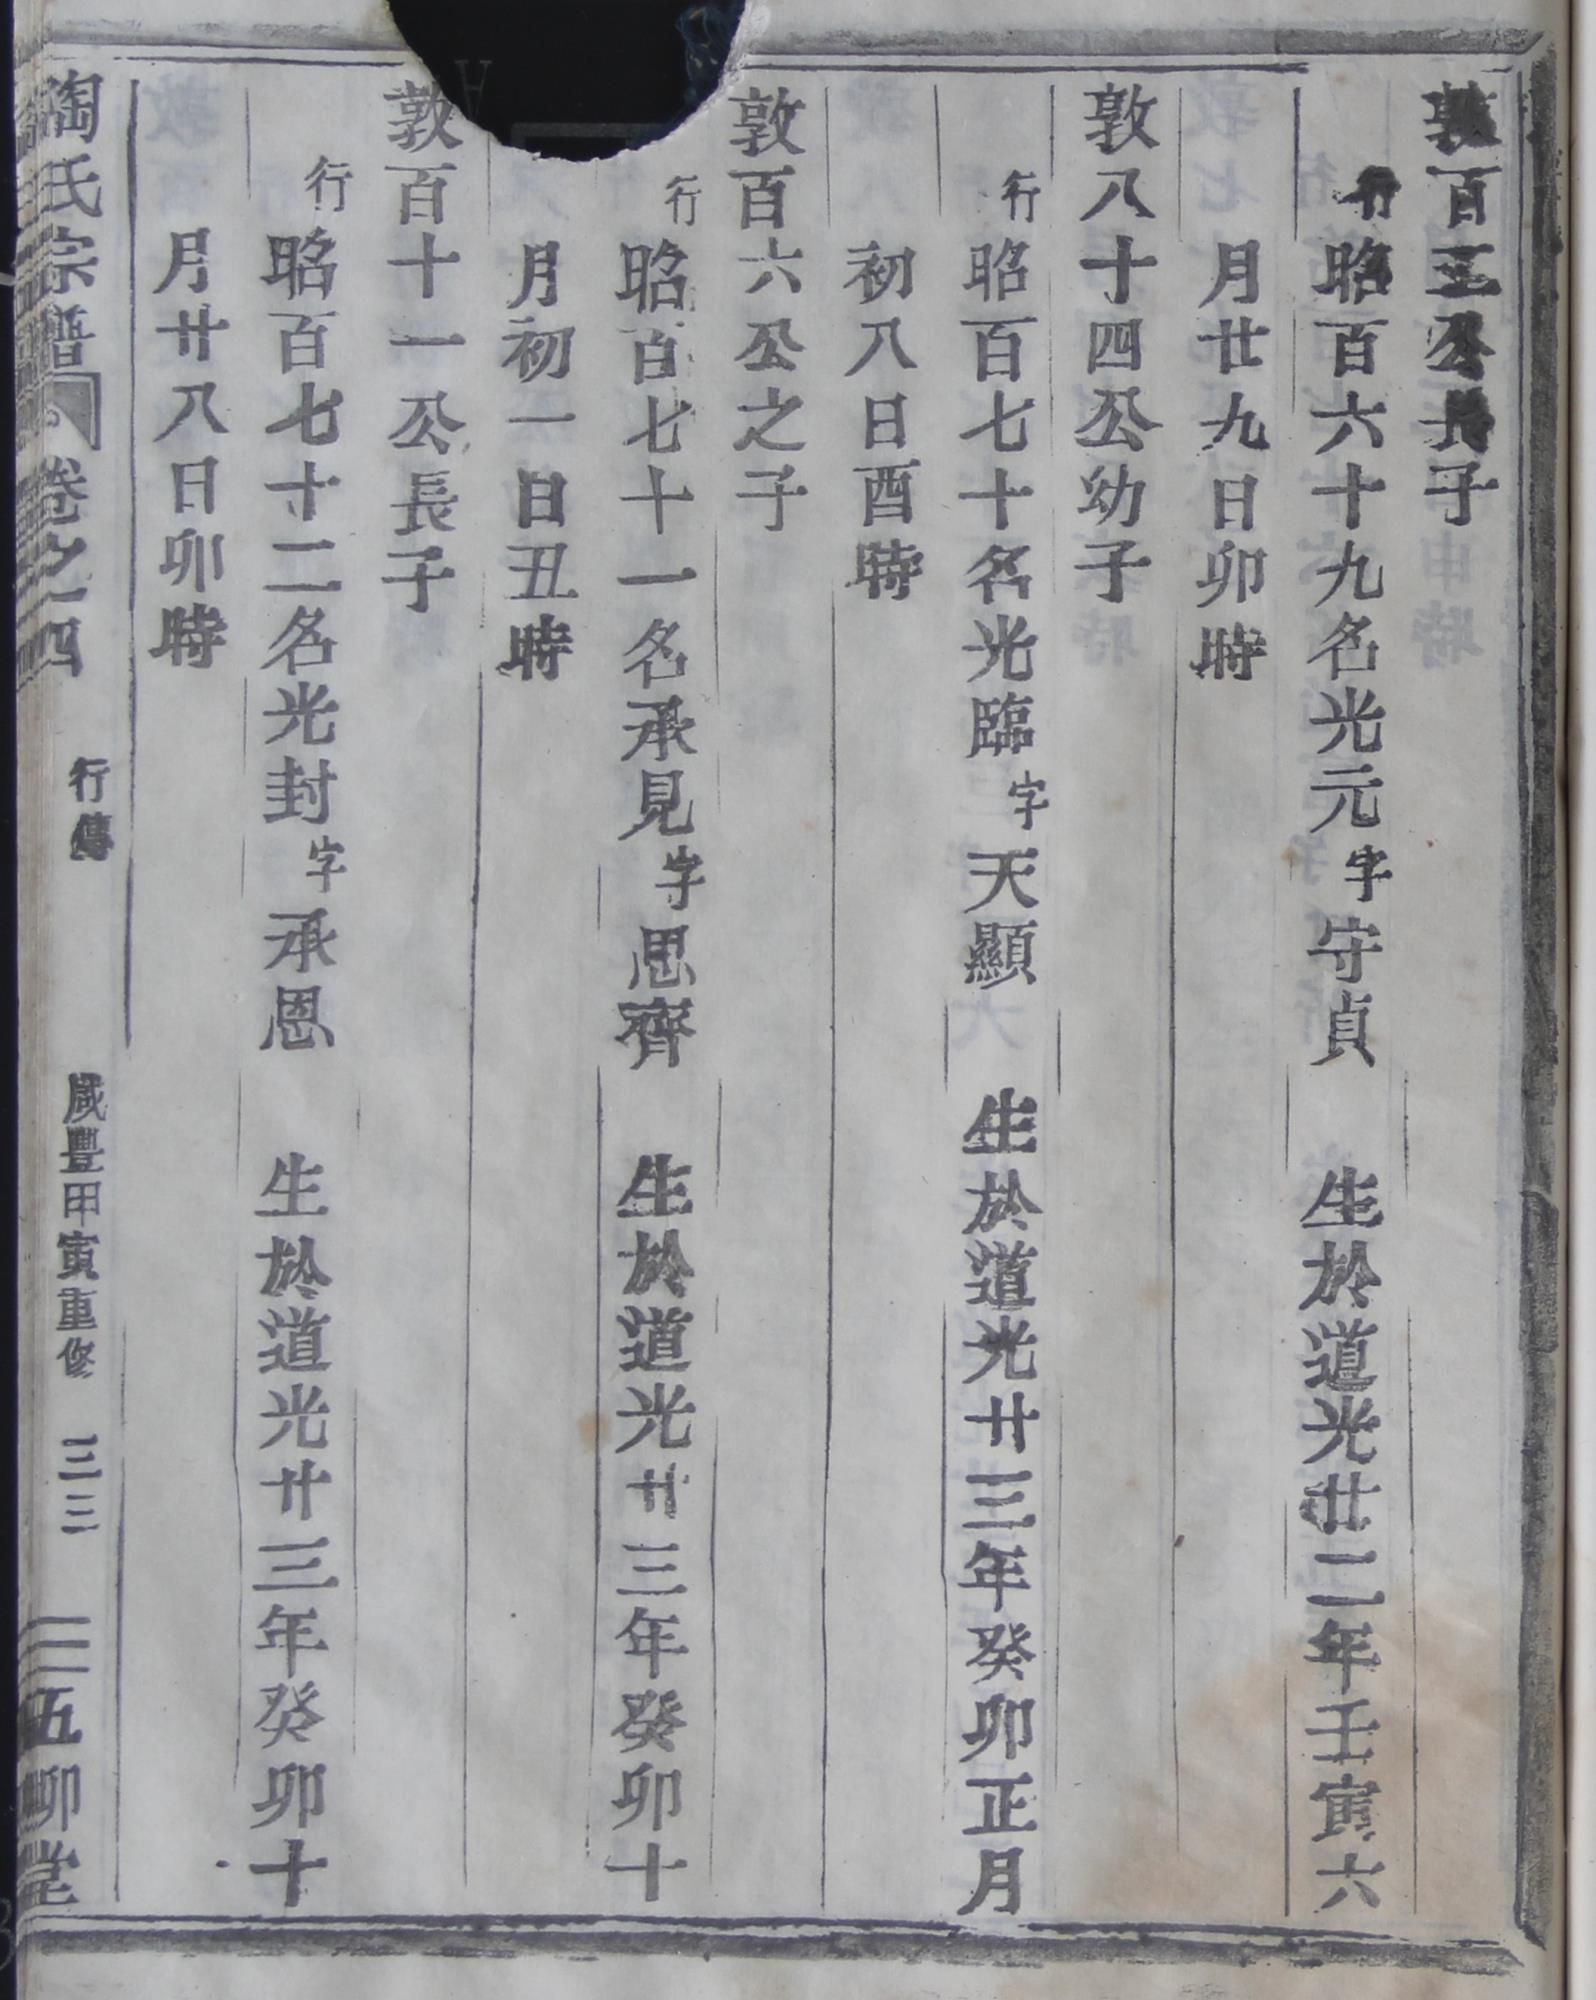 敦百三公長子
行昭百六十九名光元字守貞 生於道光廿二年壬寅六
月廿九日卯時
敦八十四公幼子
行昭百七十名光臨字天顯 生於道光廿三年癸卯正月
初八日酉時
敦百六公之子
行昭百七十一名承見字思齊 生於道光廿三年癸卯十
月初一日丑時
敦百十一公長子
行昭百七十二名光封字承恩 生於道光廿三年癸卯十
月廿八日卯時
陶氏宗譜 卷之四 行傳 咸豐甲寅重修 三三 五柳堂